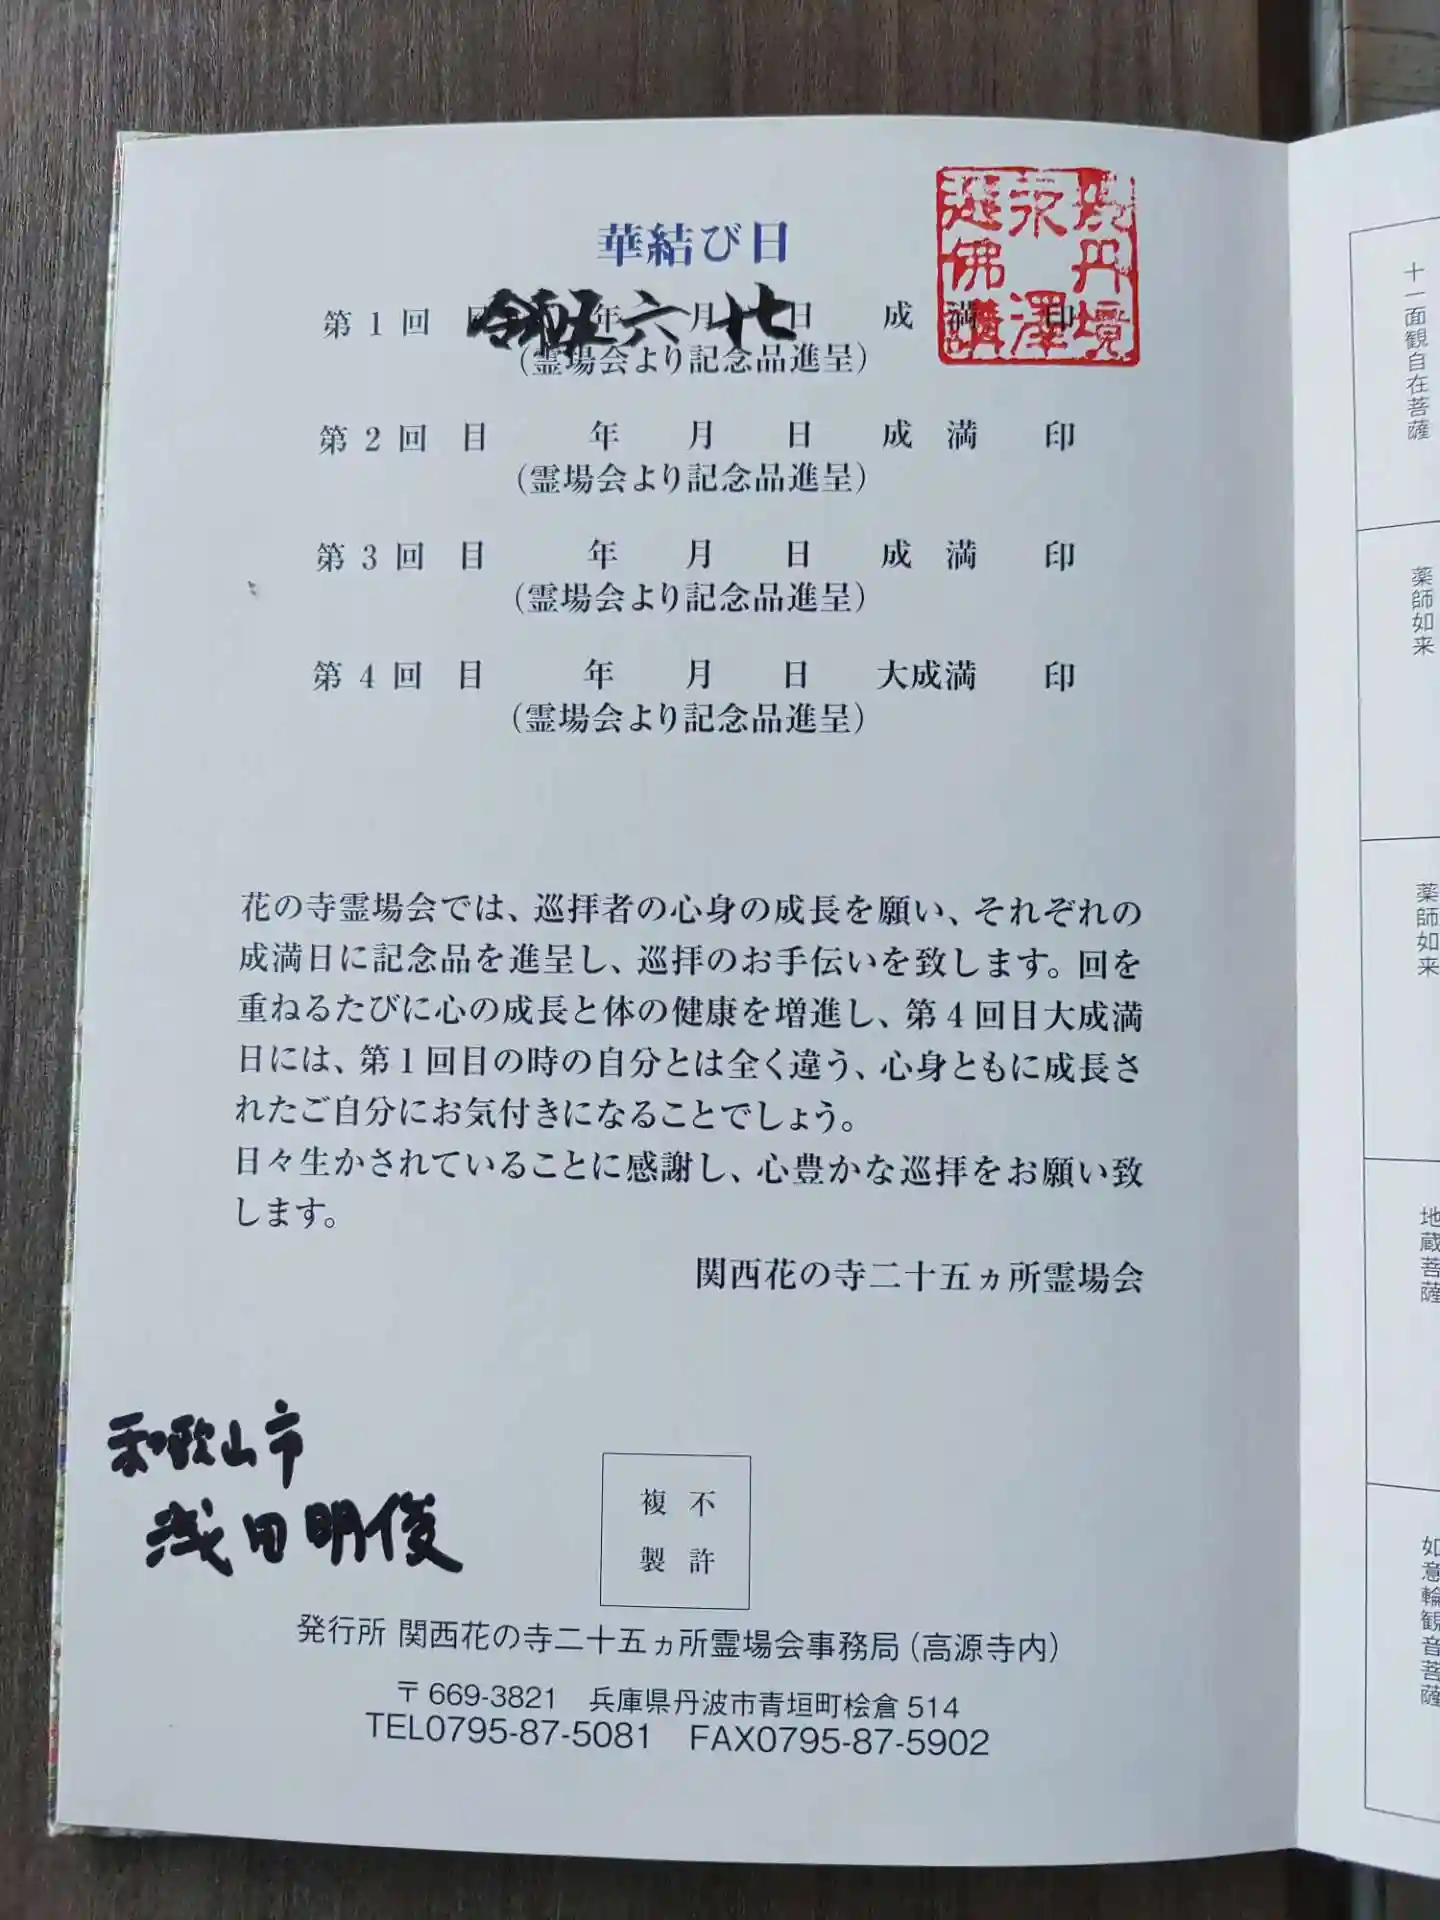 華結び日
第1回 令和五年六月十七日 成満印
(霊場会より記念品進呈)
第2回目 年 月 日 成満 印
(霊場会より記念品進呈)
第3回目 年 月 日 成満 印
(霊場会より記念品進呈)
第4回目 年 月 日 大成満 印
(霊場会より記念品進呈)
花の寺霊場会では、巡拝者の心身の成長を願い、それぞれの
成満日に記念品を進呈し、巡拝のお手伝いを致します。回を
重ねるたびに心の成長と体の健康を増進し、第4回目大成満
日には、第1回目の時の自分とは全く違う、心身ともに成長さ
れたご自分にお気付きになることでしょう。
日々生かされていることに感謝し、心豊かな巡拝をお願い致
します。
関西花の寺二十五ヵ所霊場会
和歌山市
浅田明俊
不許
複製
発行所 関西花の寺二十五ヵ所霊場会事務局(高源寺内)
〒669-3821 兵庫県丹波市青垣町桧倉514
TEL0795-87-5081 FAX0795-87-5902
十一面観自在菩薩
薬師如来
薬師如来
地蔵菩薩
如意輪観音菩薩